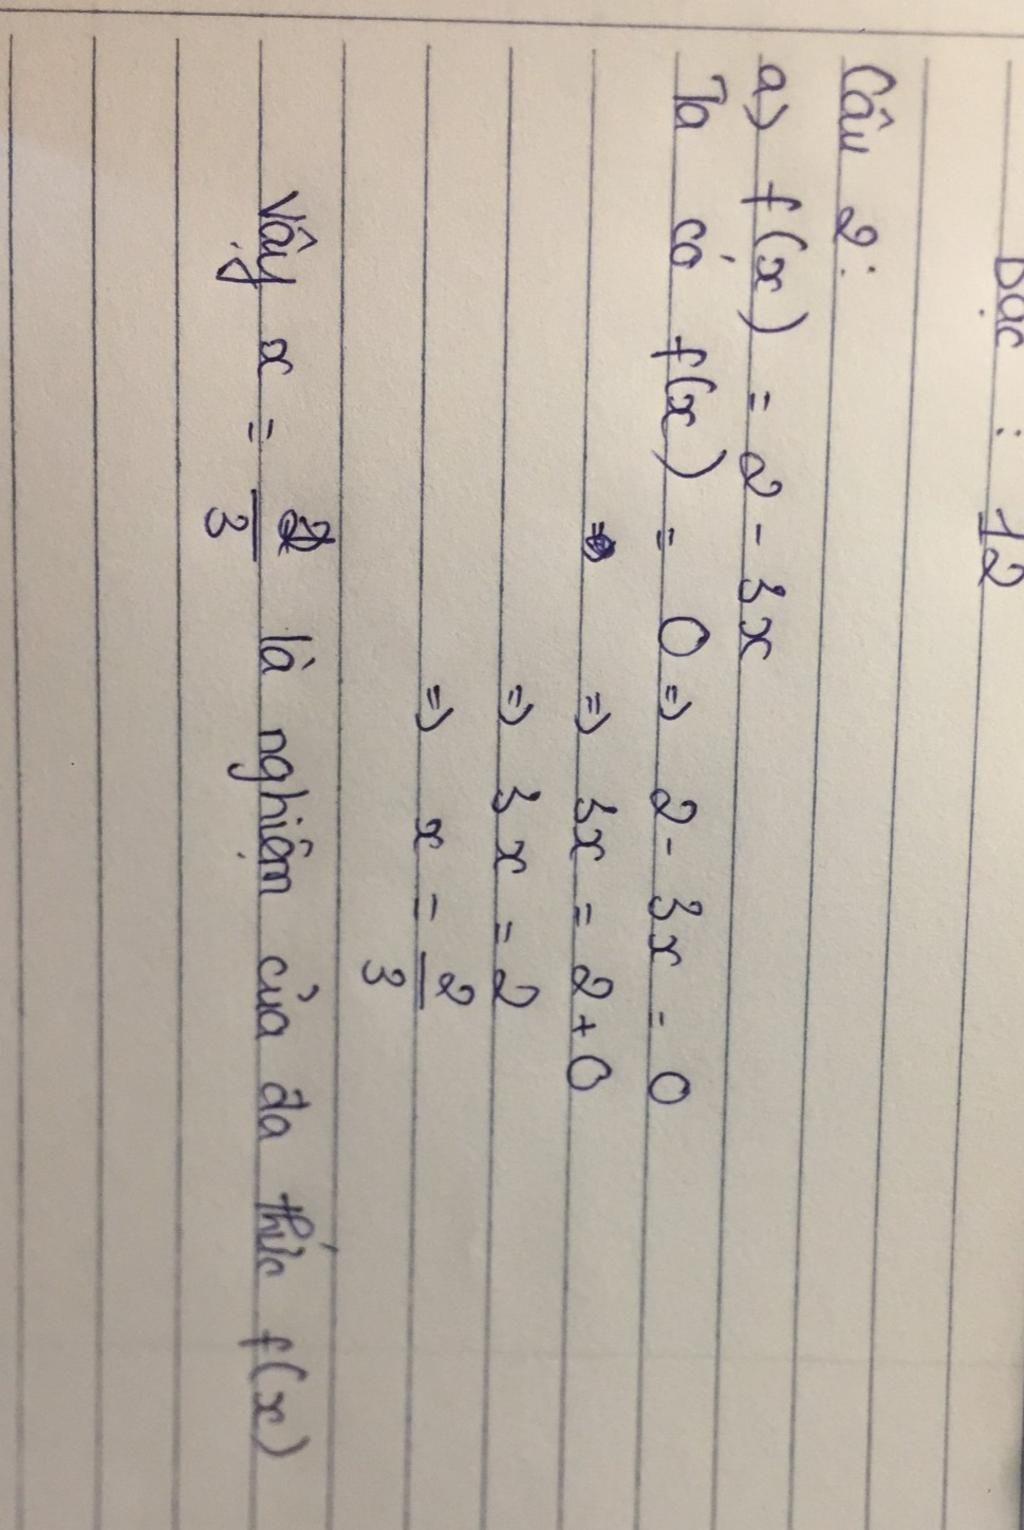 Bậc : 12
Câu 2:
a) f(x) = 2 - 3x
Ta có f(x) = 0 => 2 - 3x = 0
=> 3x = 2 + 0
=> 3x = 2
=> x = 2/3
Vậy x = 2/3 là nghiệm của đa thức f(x)